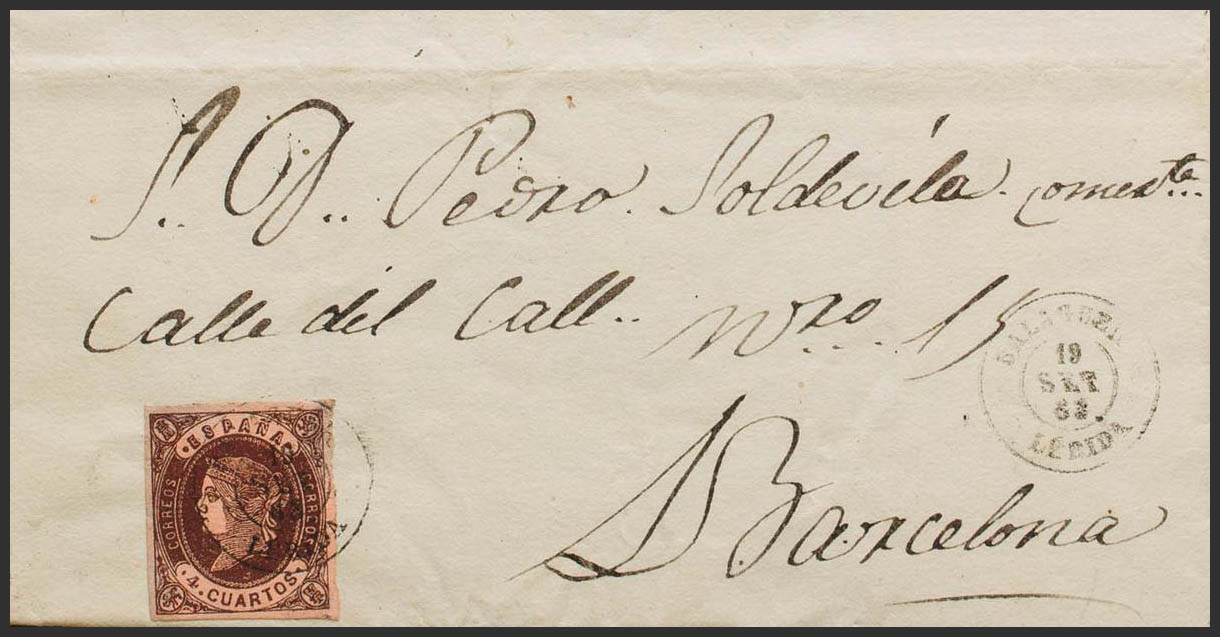 S. D.. Pedro Soldevila. comerte...
Calle del Call.. Nro... 15
BALAGUER
19
SET
63.
LERIDA
Barcelona
ESPAÑA
CORREOS
4. CUARTOS.